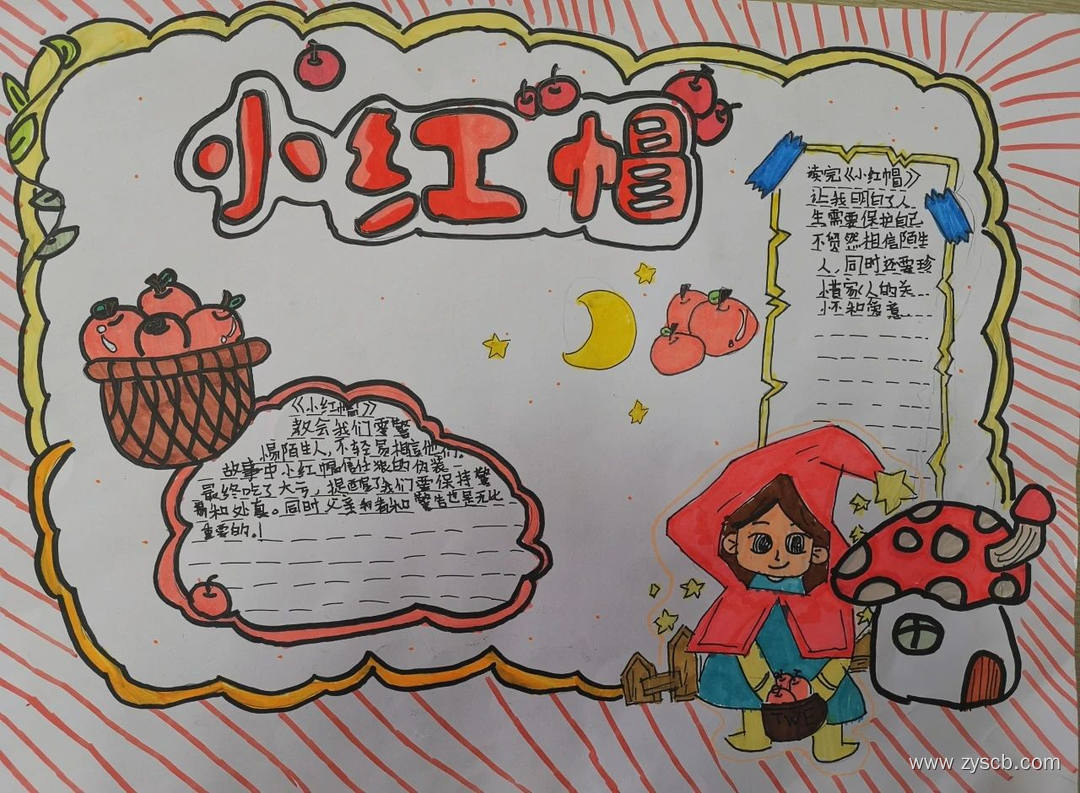 小红帽
读完《小红帽》
让我明白了人
生需要保护自己
不贸然相信陌生
人,同时还要珍
惜家人的关
怀和爱意
《小红帽》
教会我们要警
惕陌生人,不轻易相信他们,
故事中小红帽信任狼的伪装
最终吃了大亏,提醒了我们要保持警
和处真。同时父亲和 警告也是无比
重要的。!
TWE
www.zyscb.com